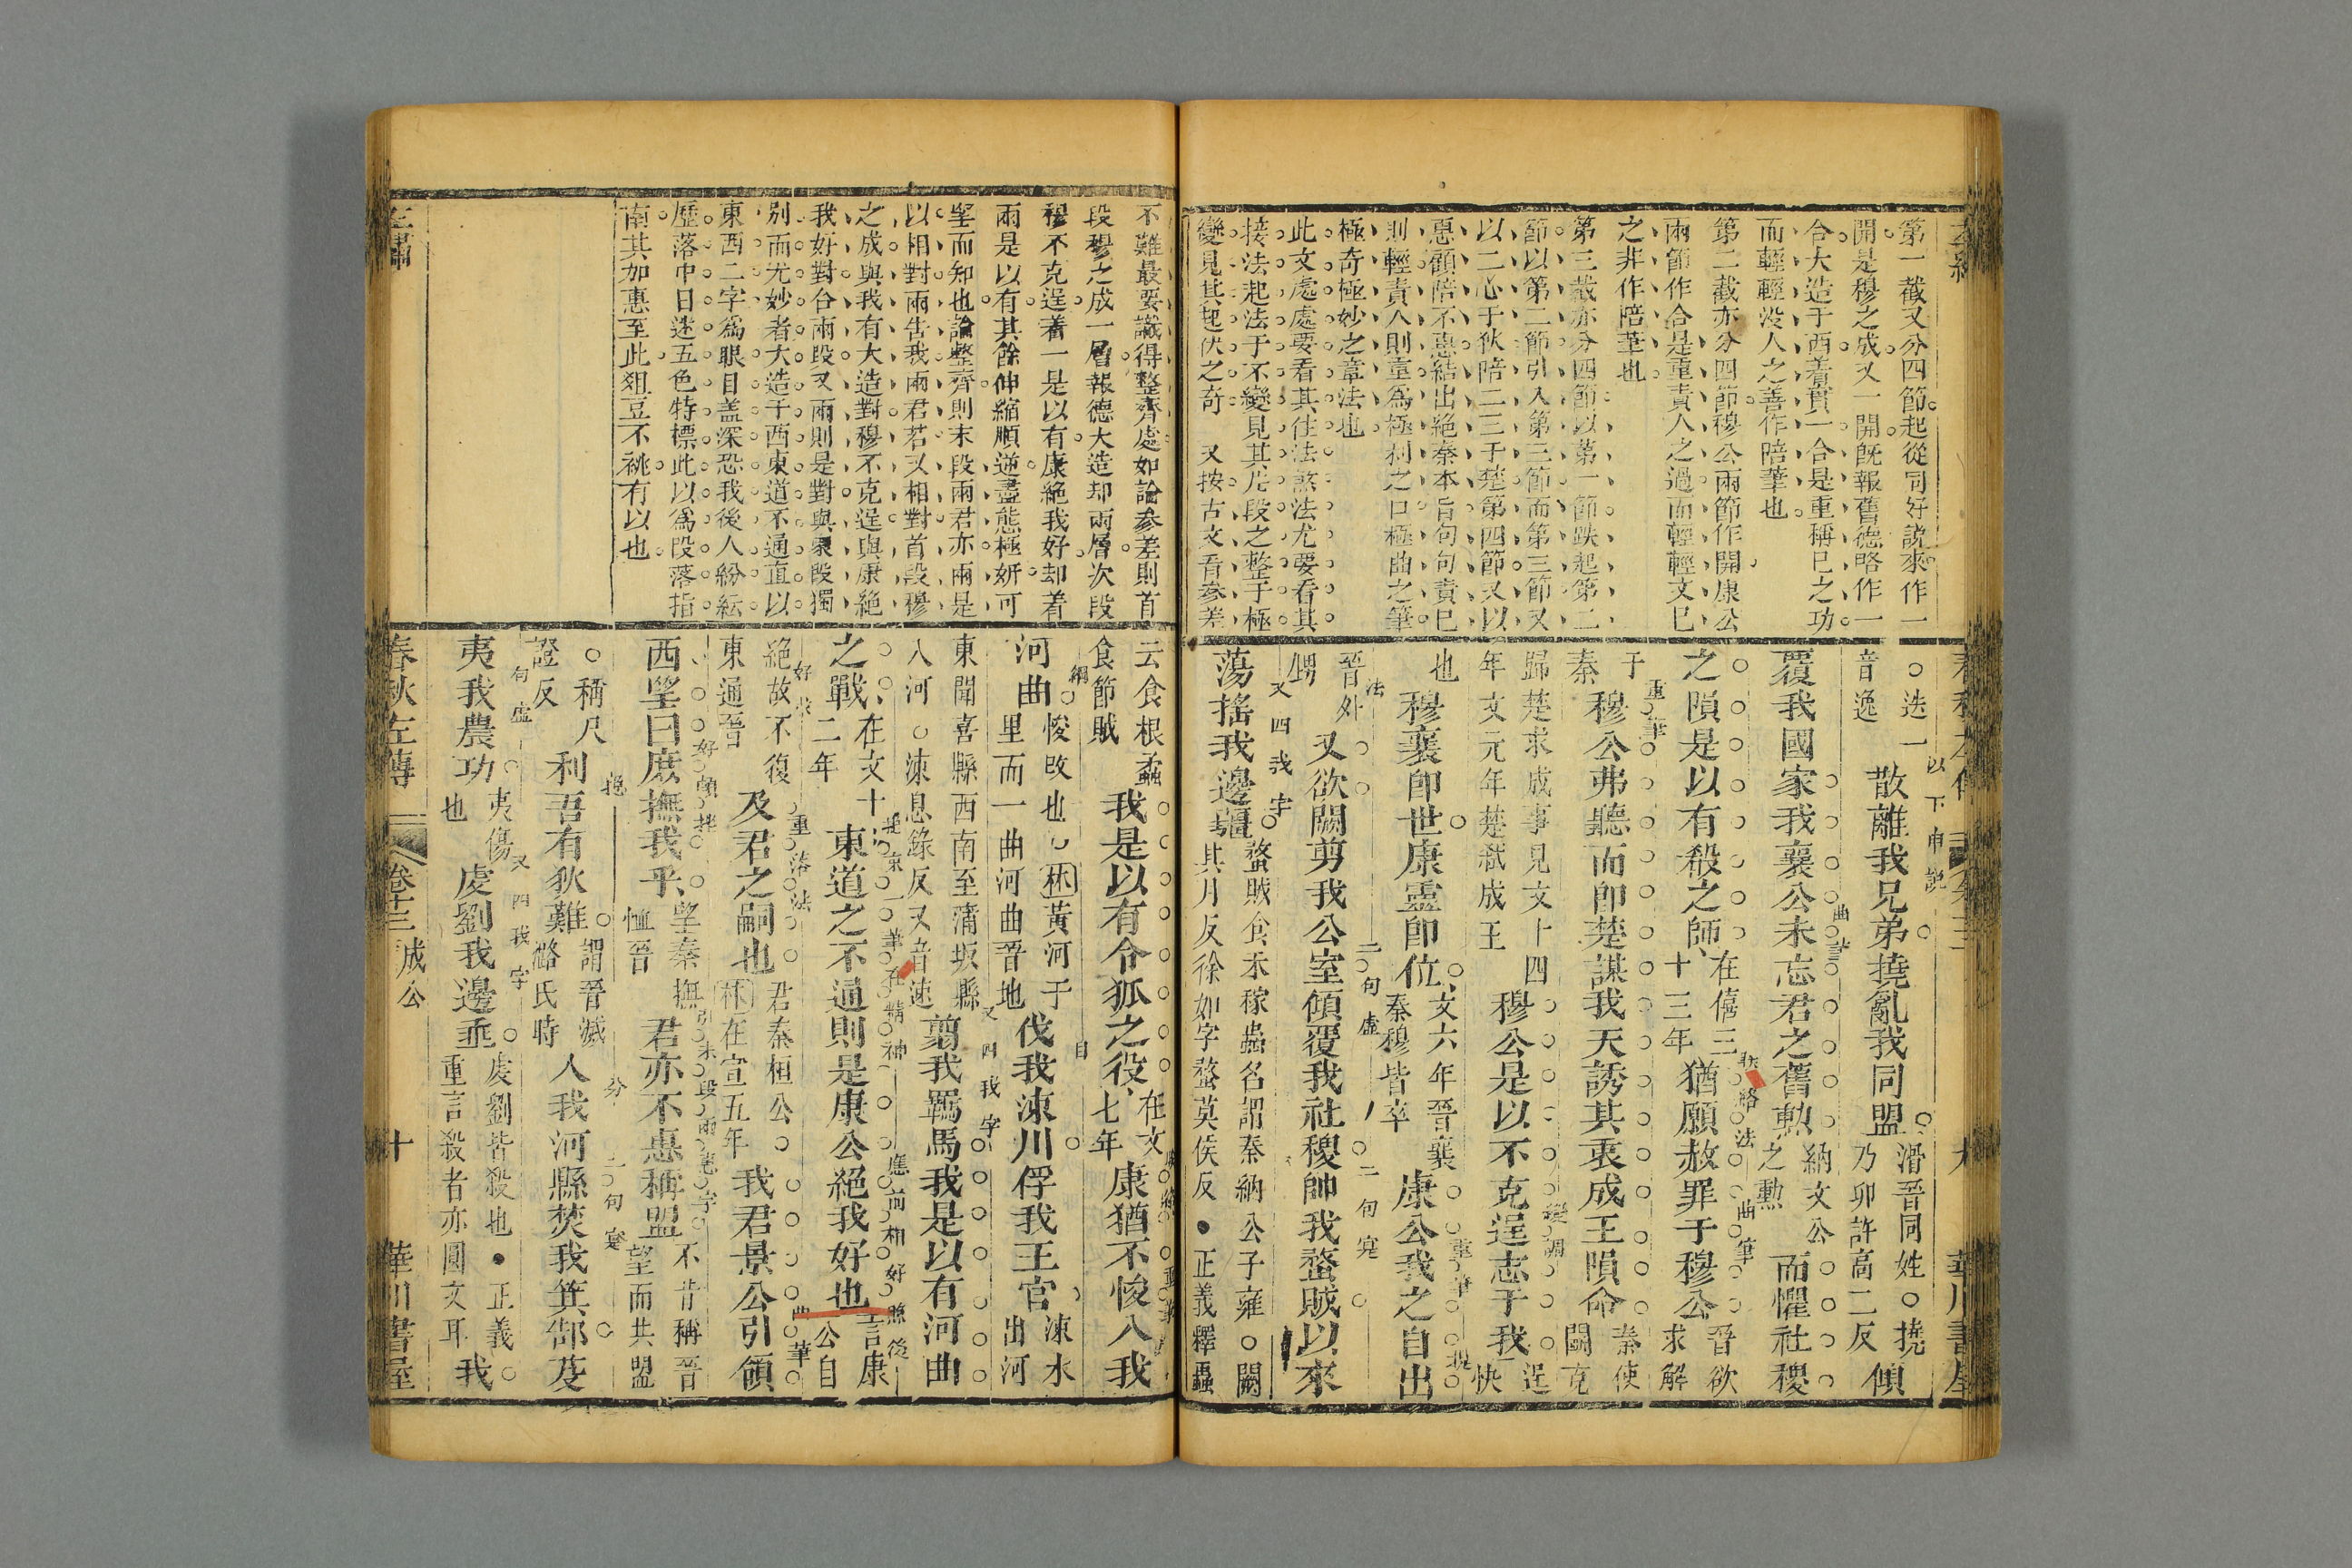 第一截又分四節起從同好說來作一
開是穆之成又一開既報舊德略作一
合大造于西着實一合是重稱已之功
而輕輕没人之善作陪筆也
第二截亦分四節穆公兩節作開康公
兩節作合是重責人之過而輕輕文已
之非作陪筆也
第三截亦分四節以第一節跌起第二
節以第二節引入第三節而第三節又
以二心于狄陪二三于楚第四節又以
惠顧陪不惠結出絶秦本旨句句責已
則輕責人則重爲極利之口極曲之筆
極奇極妙之章法也
此文處處要看其住法煞法尤要看其
接法起法于不變見其片段之整于極
變見其起伏之奇 又按古文看參差
不難最要識得整齊處如論參差則首
段穆之成一層報德大造却兩層次段
穆不克逞着一是以有康絶我好却着
兩是以有其餘伸縮順逆盡態極妍可
望而知也論整齊則末段兩君亦兩是
以相對兩告我兩君若又相對首段穆
之成與我有大造對穆不克逞與康絶
我好對合兩段又兩則是對與裹段獨
别而尤妙者大造于西東道不通直以
東西二字爲眼目盖深恐我後人紛紜
歷落中日迷五色特標此以爲段落指
南其如惠至此俎豆不祧有以也
左繡
春秋左傳
卷十三
九
華川書屋
○迭一
音逸
以下申説
散離我兄弟撓亂我同盟
滑晉同姓○撓
乃卯許高二反
傾
覆我國家我襄公未忘君之舊勲
納文公
之勲
而懼社稷
之隕是以有殽之師
在僖三
十三年
猶願赦罪于穆公
晉欲
求解
于
秦
重筆
穆公弗聽而即楚謀我天誘其衷成王隕命
秦使
鬭克
歸楚求成事見文十四
年文元年楚弑成王
穆公是以不克逞志于我
逞
快
也
穆襄即世康靈即位
文六年晉襄
秦穆皆卒
康公我之自出
晉外
甥
又欲闕剪我公室傾覆我社稷帥我蝥賊以來
二句虚
二句寔
又四我字
蕩搖我邊疆
蝥賊食禾稼蟲名謂秦納公子雍○闕
其月反徐如字蝥莫侯反●正義釋蟲
云食根蟊
食節賊
我是以有令狐之役
在文
七年
康猶不悛入我
河曲
悛改也○林黄河于
里而一曲河曲晉地
伐我涑川俘我王官
涑水
出河
東聞喜縣西南至蒲坂縣
入河○涑息錄反又音速
又四我字
翦我羈馬我是以有河曲
之戰
在文十
二年
東道之不通則是康公絶我好也
言康
公自
絶故不復
東通晉
及君之嗣也
君秦桓公
林在宣五年
我君景公引領
西望曰庶撫我乎
望秦撫
恤晉
君亦不惠稱盟
不肯稱晉
望而共盟
○稱尺
證反
利吾有狄難
謂晉滅
潞氏時
入我河縣焚我箕郜芟
夷我農功
夷傷
也
又四我字
虔劉我邊垂
虔劉皆殺也●正義
重言殺者亦圓文耳
我
左繡
春秋左傳
卷十三 成公
十
華川書屋